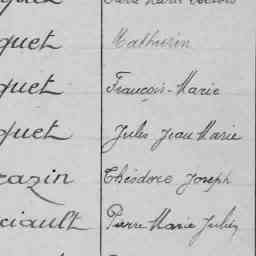 quet Mathurin
quet François-Marie
quet Jules Jean Marie
cazin Théodore Joseph
ciault Pierre Marie